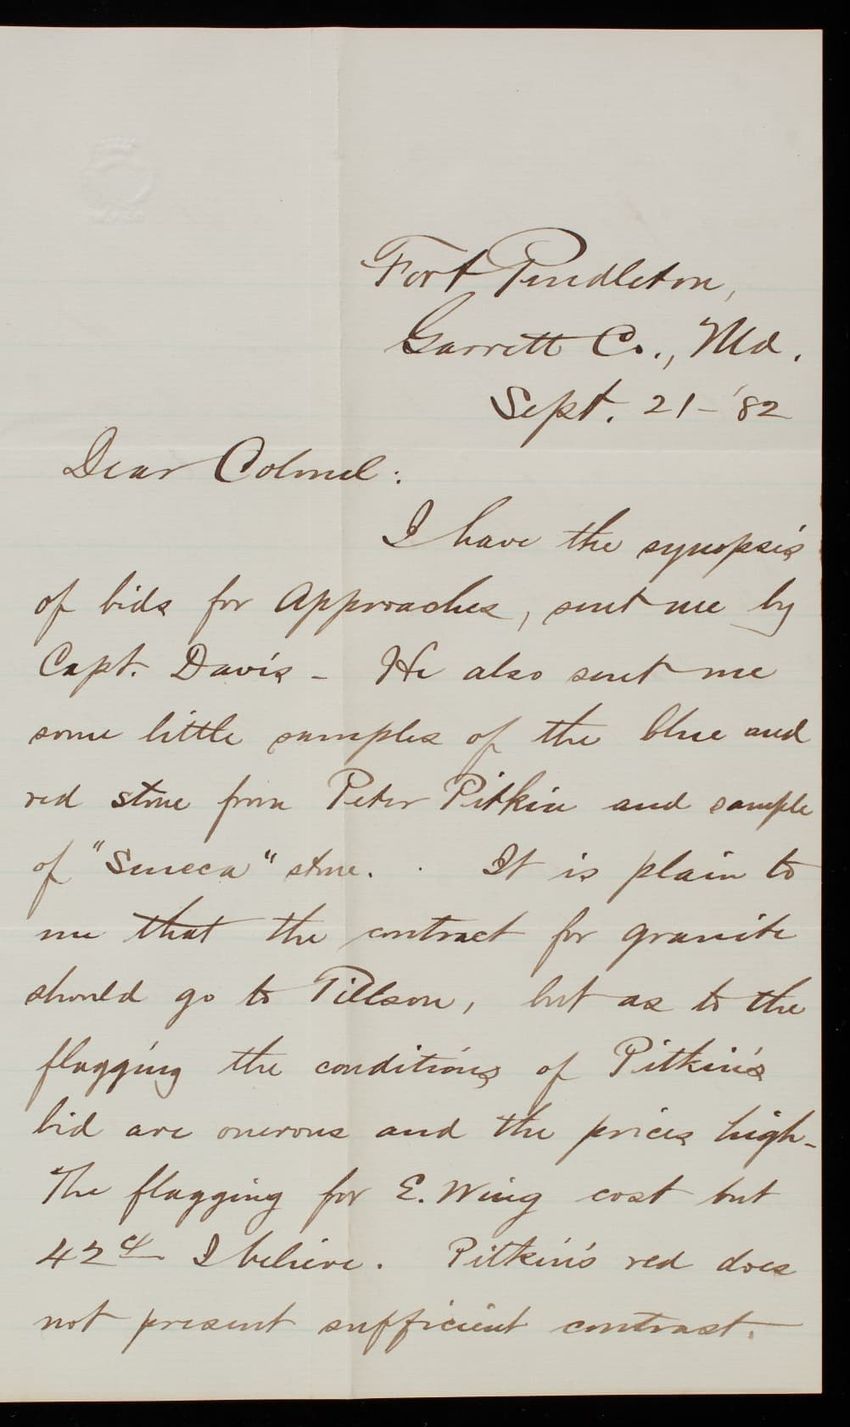 Fort Pendleton,
Garrett Co., Md.
Sept. 21-'82
Dear Colonel:
I have the synopsis
of bids for Approaches, sent me by
Capt. Davis - He also sent me
some little samples of the blue and
red stone from Peter Pitkin and sample
of "Seneca" stone. It is plain to
me that the contract for granite
should go to Tillson, but as to the
flagging the conditions of Pitkin's
bid are onerous and the prices high-
The flagging for E. Wing cost but
42¢ I believe. Pitkin's red does
not present sufficient contrast.